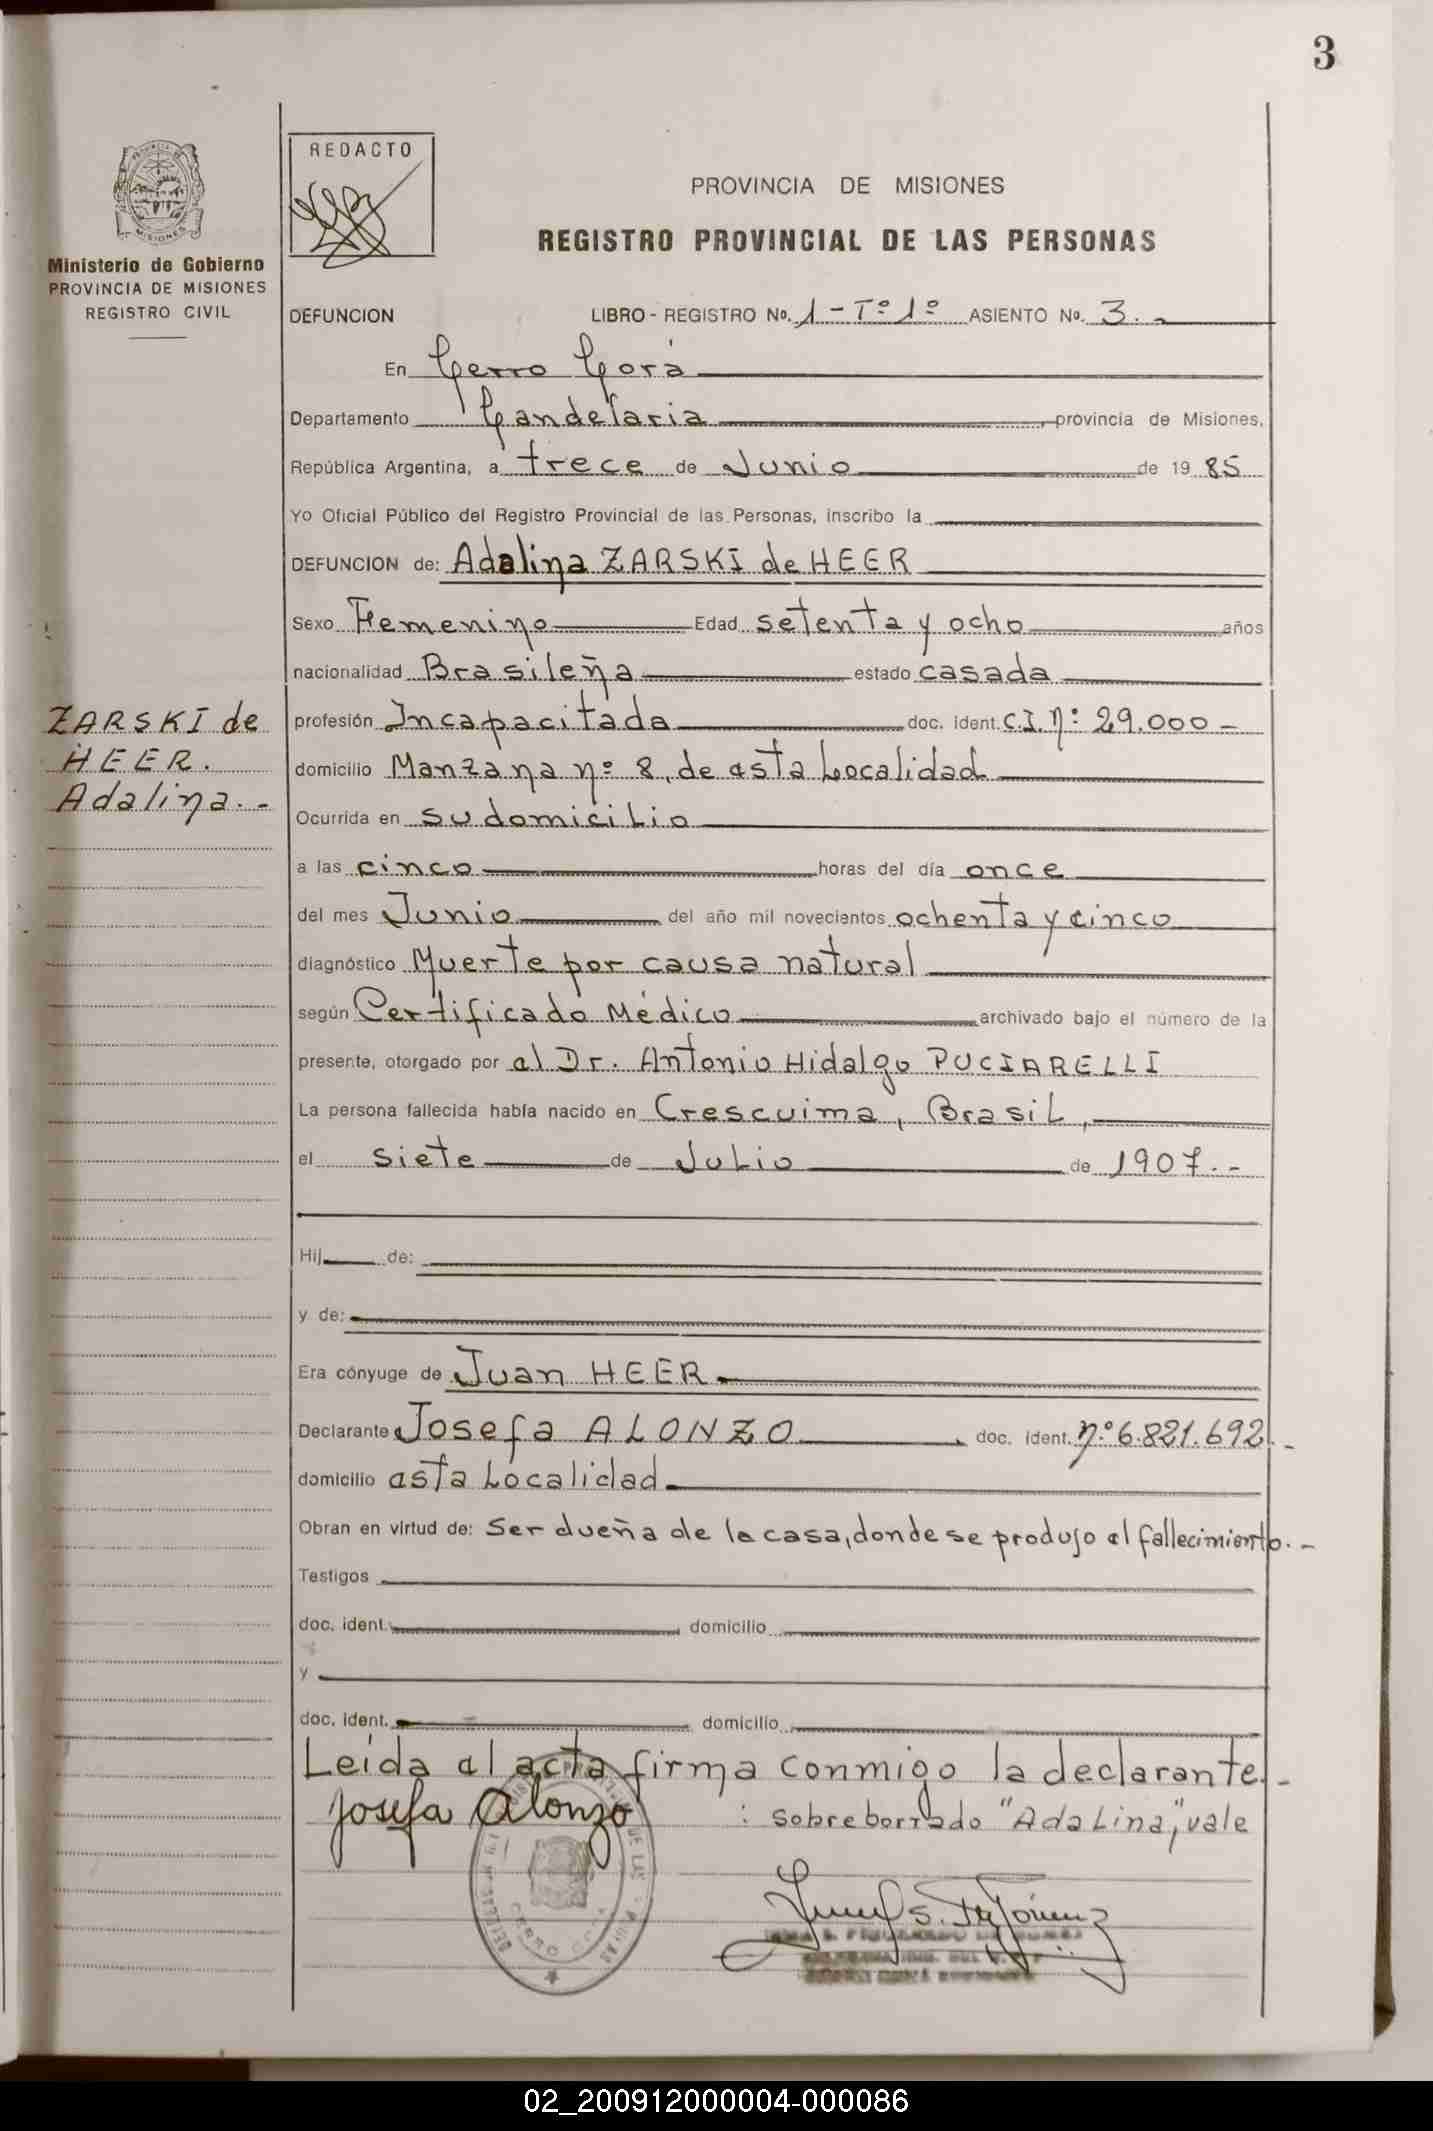 3
REDACTO
MISIONES
Ministerio de Gobierno
PROVINCIA DE MISIONES
REGISTRO CIVIL
PROVINCIA DE MISIONES
REGISTRO PROVINCIAL DE LAS PERSONAS
DEFUNCION LIBRO - REGISTRO No. 1 - Tº 1º ASIENTO No. 3. -
En Cerro Corá
Departamento Candelaria , provincia de Misiones,
República Argentina, a trece de Junio de 19 85
Yo Oficial Público del Registro Provincial de las Personas, inscribo la
DEFUNCION de: Adalina ZARSKI de HEER
Sexo Femenino Edad setenta y ocho años
nacionalidad Brasileña estado casada
ZARSKI de
HEER.
Adalina. -
profesión Incapacitada doc. ident. C.I. nº 29.000 -
domicilio Manzana nº 8, de esta Localidad
Ocurrida en su domicilio
a las cinco horas del día once
del mes Junio del año mil novecientos ochenta y cinco
diagnóstico Muerte por causa natural
según Certificado Médico archivado bajo el número de la
presente, otorgado por el Dr. Antonio Hidalgo PUCIARELLI
La persona fallecida había nacido en Crescuima, Brasil,
el siete de Julio de 1907. -
Hij de:
y de:
Era cónyuge de Juan HEER
Declarante Josefa ALONZO . doc. ident. nº 6.821.692. -
domicilio esta Localidad
Obran en virtud de: Ser dueña de la casa, donde se produjo el fallecimiento. -
Testigos
doc. ident. domicilio
y
doc. ident. domicilio
Leída el acta firma conmigo la declarante. -
Josefa Alonzo : sobreborrado "Adalina", vale
CERRO CORA
02_200912000004-000086